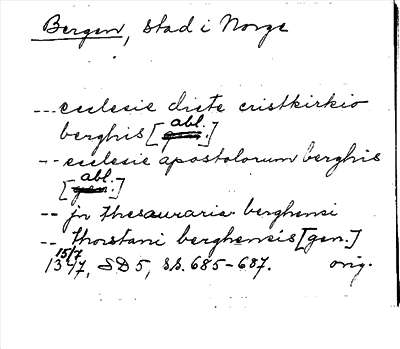 Bergen, stad i Norge
--- ecclesie dicte cristkirkio
berghis [abl.]
-- ecclesie apostolorum berghis
[abl.]
-- jn thesauraria berghensi
-- thorstani berghensis [gen.]
15/7
1347, SD 5, ss. 685-687. orig.